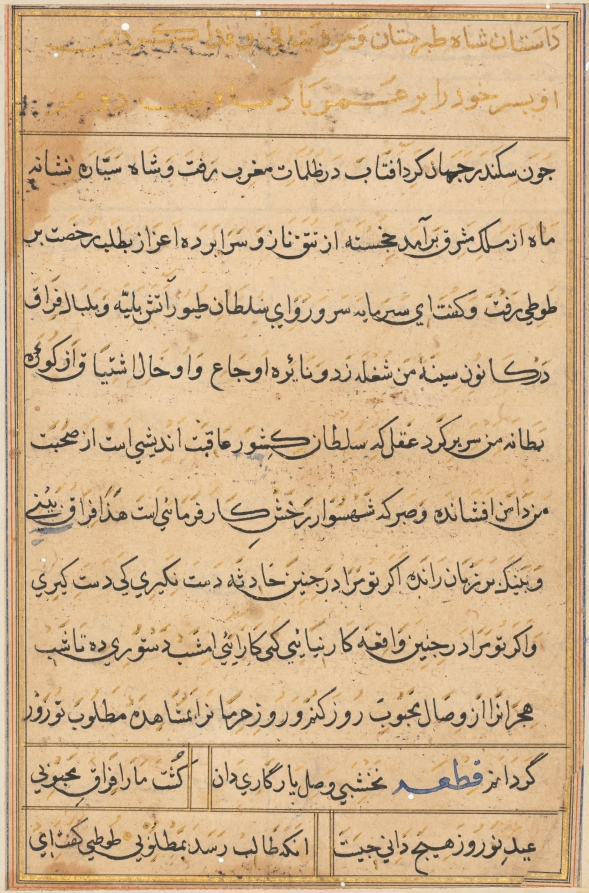 داستان شاه طبرستان و مرد
او پسر خود را بر عمر پادشاه
جون سکندر جهان کرد افتاب در ظلمات مغرب رفت و شاه سیاره نشانه
ماه از ممالک مشرق برآمد خجسته از تتق ناز و سرا برده اعزاز بطلب رخصت بر
طوطی رفت و کفت ای سرمایه سرور وای سلطان طیور آتش بلیه و بلبال فراق
در کانون سینهٔ من شعله زد و نایره اوجاع و اوحال اشتیاق از کوره
بطانه من سر بر کرد عقل که سلطان کشور عاقبت اندیشی است از صحبت
من دامن افشانده و صبر که شهسوار رخش کار فرمائی است هذا فراق بینی
و بینک بر زبان رانده اکر تو مرا در جنین حادثه دست نکیری کی دست کیری
و اکر تو مرا در جنین واقعه کار نیائی کی کار آئی امشب دستوری ده تا شب
هجر انرا از وصال محبوب روز کنم و روز حرمانرا بمشاهده مطلوب نوروز
گردانم قطعه نخشبی وصل یار گاری دان کشت ما را فراق محبوبی
عید نوروز هیچ دانی جیت انکه طالب رسد بمطلوبی طوطی کفت ای